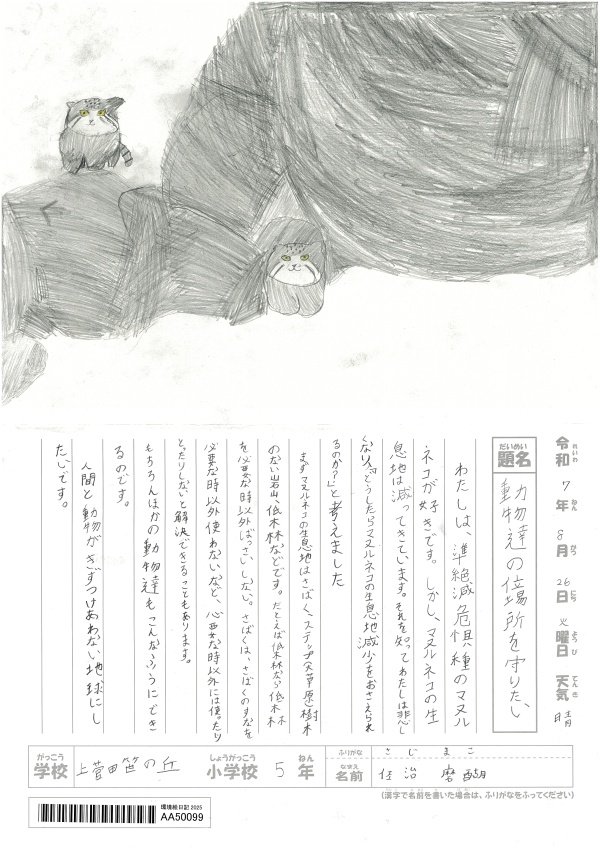 令和7年8月26日火曜日 天気 晴
れいわ ねん がつ にち ようび てんき
だいめい
題名 動物達の住場所を守りたい
わたしは、準絶滅危惧種のマヌル
ネコが好きです。しかし、マヌルネコの生
息地は減ってきています。それを知ってわたしは悲し
くなり、「どうしたらマヌルネコの生息地減少をおさえられ
るのか?」と考えました
まずマヌルネコの生息地はさばく、ステップ(草原)樹木
のない岩山、低木林などです。たとえば低木林なら低木林
を必要な時以外ばっさいしない。さばくは、さばくのすなを
必要な時以外使わないなど、必要な時以外には使ったり
とったりしないと解決できることもあります。
もちろんほかの動物達もこんなふうにでき
るのです。
人間と動物がきずつけあわない地球にし
たいです。
がっこう しょうがっこう ねん ふりがな さじ まこ
学校 上菅田笹の丘 小学校 5年 なまえ 名前 佐治 磨醐
(漢字で名前を書いた場合は、ふりがなをふってください)
環境絵日記2025
AA50099